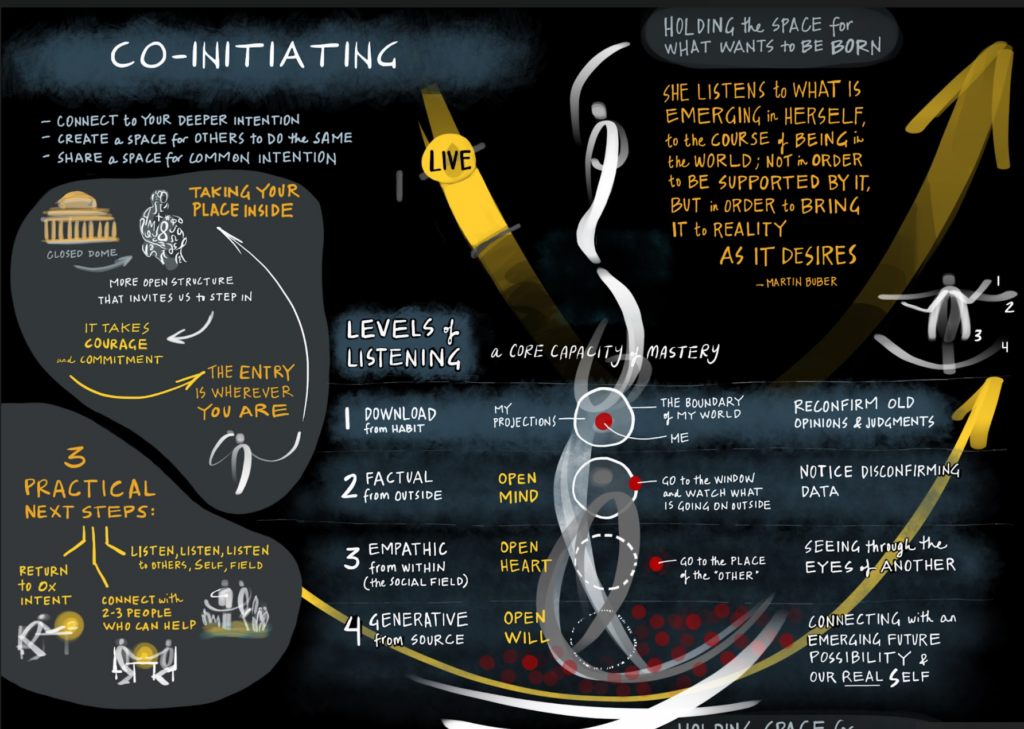 CO-INITIATING
- CONNECT to YOUR DEEPER INTENTION
- CREATE a SPACE for OTHERS to DO the SAME
- SHARE a SPACE for COMMON INTENTION
HOLDING the SPACE for
WHAT WANTS to BE BORN
SHE LISTENS to WHAT IS
EMERGING in HERSELF,
to the COURSE of BEING in
the WORLD; NOT in ORDER
to BE SUPPORTED BY IT,
BUT in ORDER to BRING
IT to REALITY
AS IT DESIRES
- MARTIN BUBER
LIVE
TAKING YOUR
PLACE INSIDE
CLOSED DOME
MORE OPEN STRUCTURE
THAT INVITES US to STEP IN
IT TAKES
COURAGE
and COMMITMENT
THE ENTRY
IS WHEREVER
YOU ARE
1
2
3
4
LEVELS of
LISTENING
a CORE CAPACITY of MASTERY
1 DOWNLOAD
from HABIT
MY
PROJECTIONS
THE BOUNDARY
of MY WORLD
ME
RECONFIRM OLD
OPINIONS & JUDGMENTS
2 FACTUAL
from OUTSIDE
OPEN
MIND
GO to the WINDOW
and WATCH WHAT
IS GOING ON OUTSIDE
NOTICE DISCONFIRMING
DATA
3 EMPATHIC
from WITHIN
(the SOCIAL FIELD)
OPEN
HEART
GO to the PLACE
of the "OTHER"
SEEING through the
EYES of ANOTHER
4 GENERATIVE
from SOURCE
OPEN
WILL
CONNECTING with an
EMERGING FUTURE
POSSIBILITY &
OUR REAL SELF
3
PRACTICAL
NEXT STEPS:
RETURN
to 0x
INTENT
CONNECT with
2-3 PEOPLE
WHO CAN HELP
LISTEN, LISTEN, LISTEN
to OTHERS, SELF, FIELD
HOLDING SPACE for